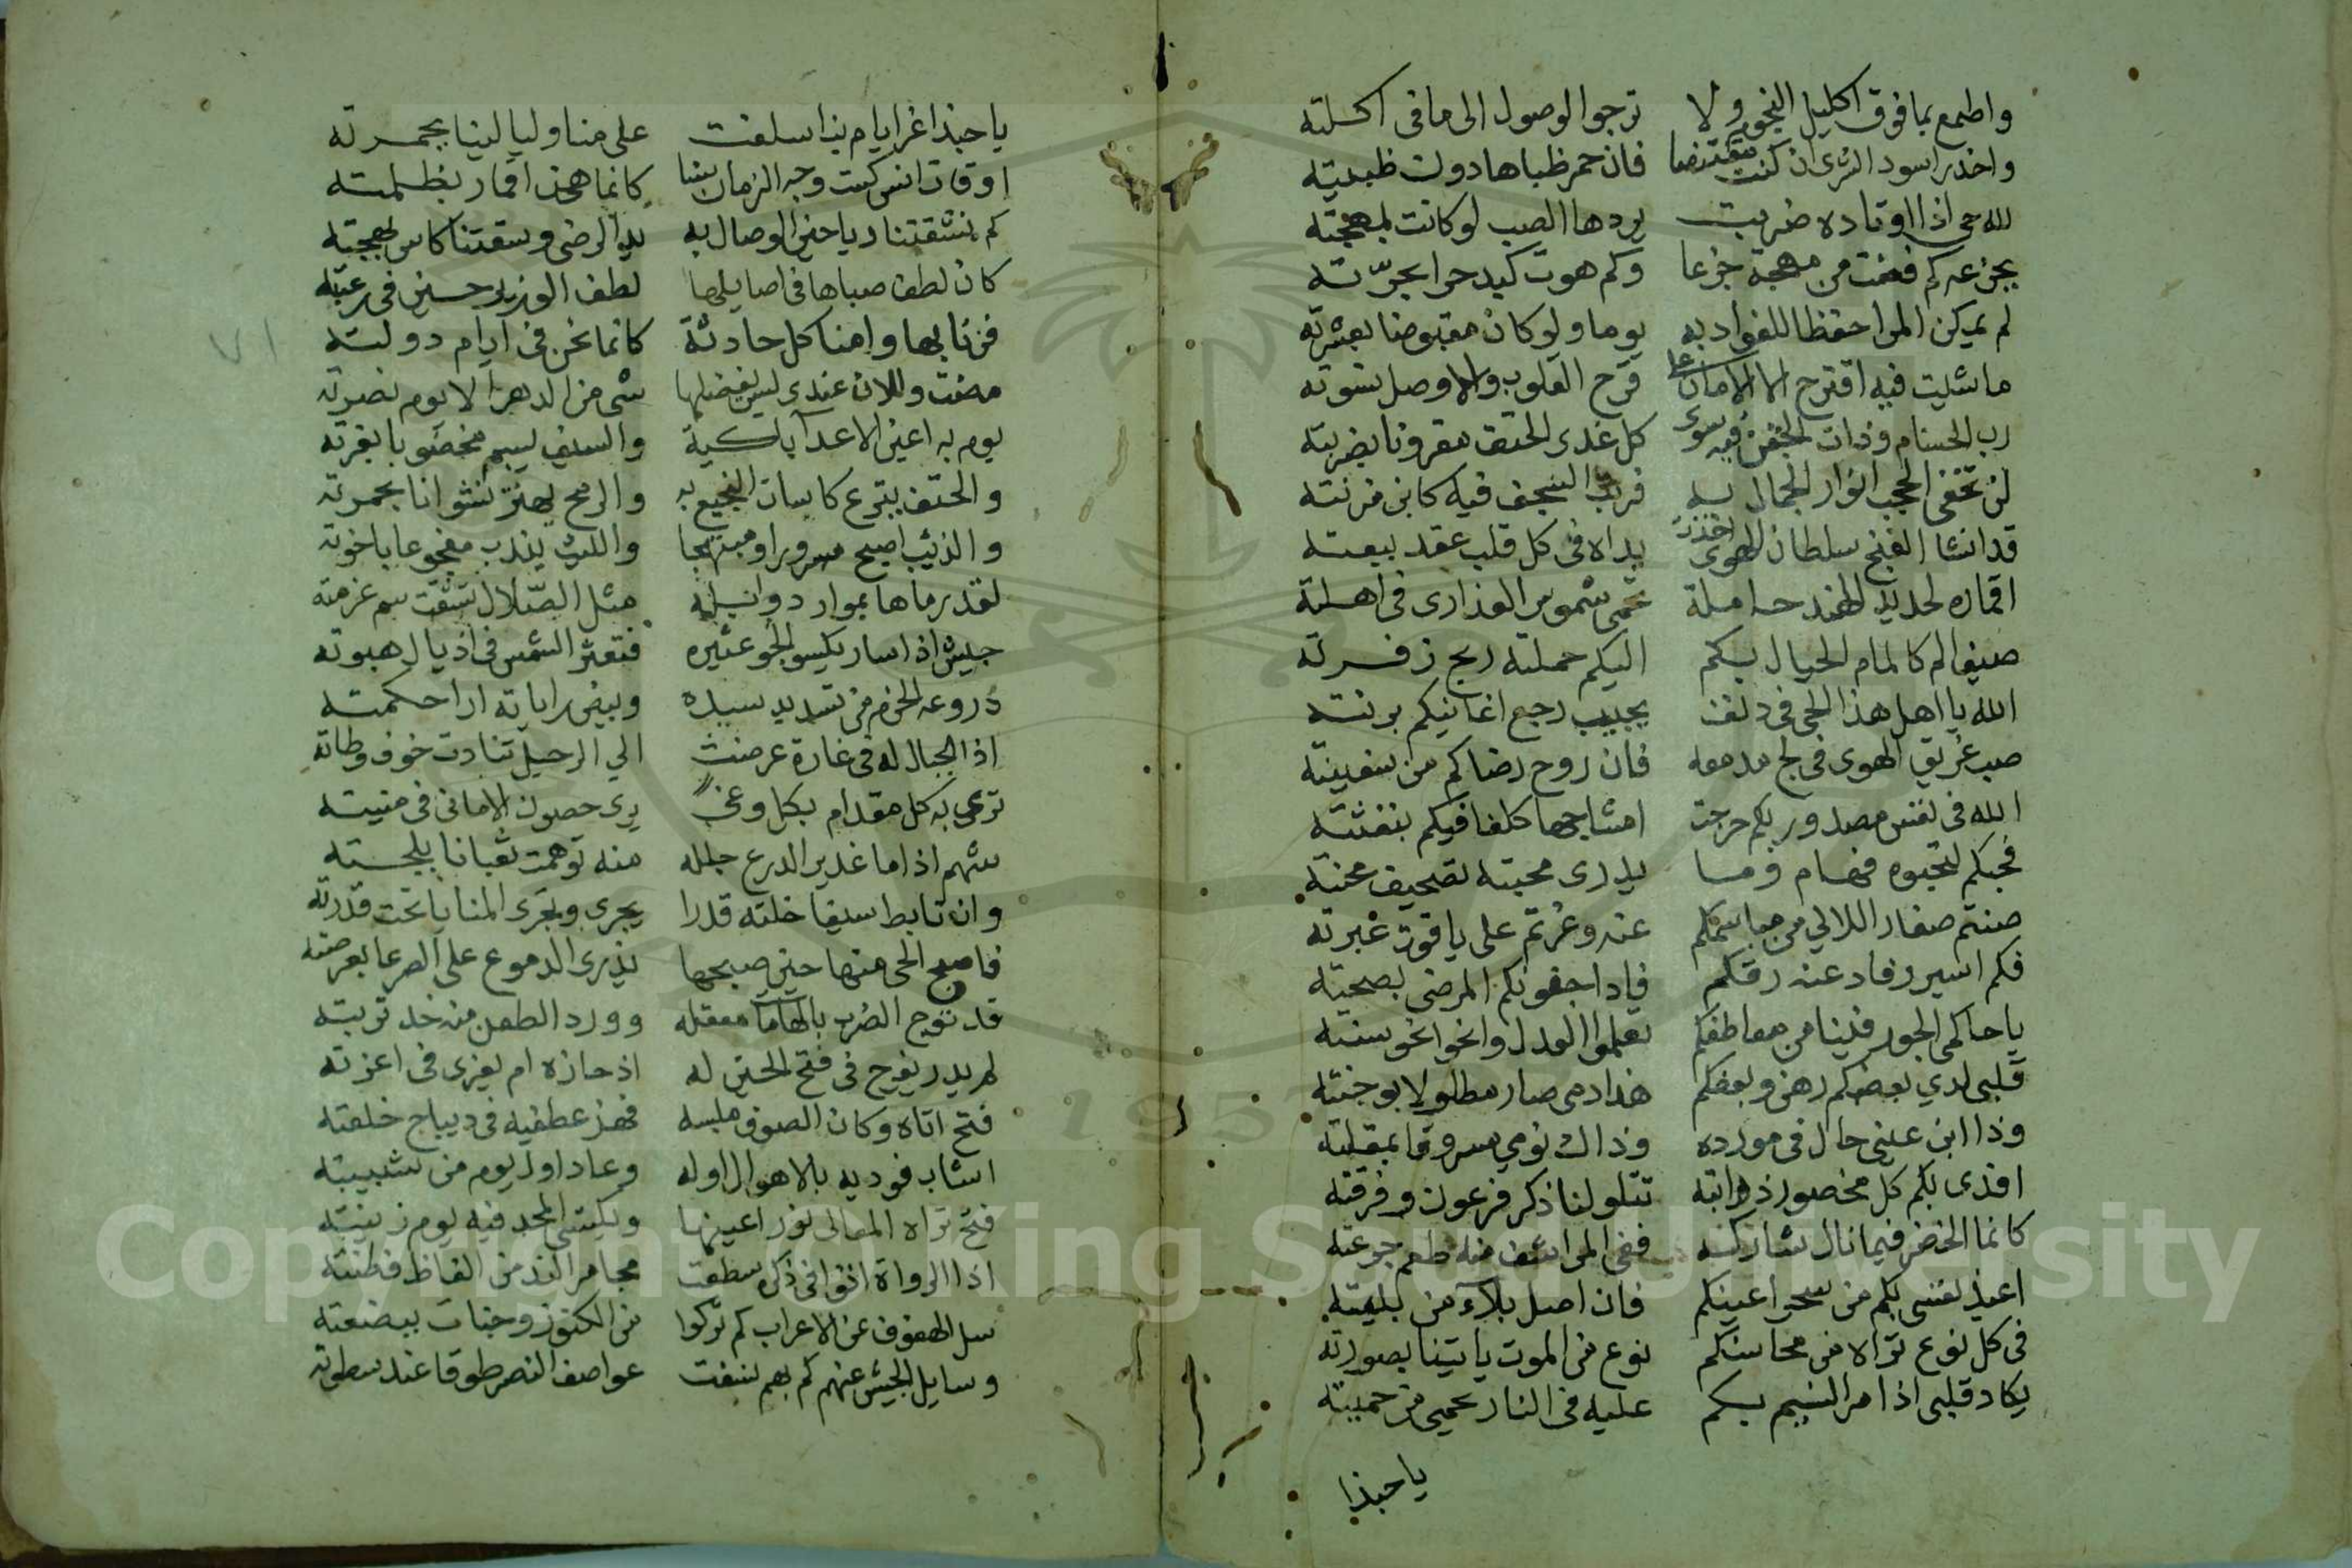 واطمع بما فوق اكليل النجوم ولا ترجوا الوصول الى ما فى اكلته
واحذر اسود الشرى ان كنت مقتنصا فان حمر ظباها دون ظبيته
لله حى اذا اوتاده ضربت يردها الصب لو كانت بمهجته
بجزعه كم قضت من مهجة جزعا وكم هوت كبد حرا بحرّته
لم يمكن المرا حفظا للفواد به يوما ولو كان مقبوضا بعشرته
ما شيت فيه اقترح الا الامان على قرح القلوب والا وصل نسوته
رب الحسام وذات الجفن فيه سوى كل غدى الحتف مقرونا بضربته
لن تخفى الحجب انوار الجمال به فربّ السجف فيه كابن مزنته
قد انشا الغنج سلطان الهوى اخذت يداه فى كل قلب عقد بيعته
اقماره لحديد الهند حاملة تحمى شموس العذارى فى اهلته
ضيف الم كالمام الخيال بكم اليكم حملته ريح زفرته
الله يا اهل هذا الحى فى دنف يجيب رجع اغانيكم برنته
صب غريق الهوى فى لج مدمعه فان روح رضاكم من سفينته
الله فى نفس مصدور بكم خرجت امشاجها كلفا فيكم بنفثته
فحبكم لتحبوه فهام وما يدرى محبته تصحيف محنته
صنتم صغار اللالي من مباسمكم عنه وغرتم على ياقوت عبرته
فكم اسير رقاد عنه رقكم فادا جفونكم المرضى بصحته
يا حاكمى الجور فينا من معاطفكم تعلموا العدل وانحوا نحو سنته
قلبى لدي بعضكم رهن وبعضكم هذا دمى صار مطلولا بوجنته
وذا ابن عينى خال فى مورده وذاك نومي مسروقا بمقلته
افدى بكم كل مخصور ذوابته تتلو لنا ذكر فرعون وفرقته
كانما الخضر فيما نال شاركه ففى المراشف منه طعم جرعته
اعيذ نفسى بكم من سحر اعينكم فان اصل بلاء من بليته
فى كل نوع تراه من محاسنكم نوع من الموت ياتينا بصورته
يكاد قلبى اذا مر النسيم بكم عليه فى النار يحمى من حميته
يا حبذا
يا حبذا غر ايام بنا سلفت على منا وليالينا بجمرته
اوقات انس كست وجه الزمان سنا كانما هجن اقمار بظلمته
كم نشقتنا رياحين الوصال به يد الرضى وسقتنا كاس بهجته
كان لطف صباها فى اصايلها لطف الوزير حسين فى رعيته
فزنا بها وامنا كل حادثة كانما نحن فى ايام دولته
مضت وللان عندى ليس يفضلها شى من الدهر الا يوم نصرته
يوم به اعين الاعدا باكية والسيف يبسم مخضوبا بغرته
والحتف يترع كاسات النجيع به والرمح يهتز نشوانا بخمرته
والذيب اصبح مسرورا ومبتهجا والليث يندب مفجوعا باخوته
لقد رماها بموار دوابله مثل الصّلال تسقت سم عزمته
جيش اذا سار يكسو الجو عثيره فتعثر الشمس فى اذيال هبوته
دروعه الحزم من تسديد سيده وبيض راياته ارا حكمته
اذا الجبال له فى غارة عرضت الي الرحيل تنادت خوف وطاته
ترمى به كل مقدام بكل وغى يرى حصون الامانى فى منيته
شهم اذا ما غدير الدرع جلله منه توهمت ثعبانا بلجته
وان تابط سيفا خلته قدرا يجرى وتجرى المنايا تحت قدرته
فاصبح الحى منها حين صبحها يذرى الدموع على الصرعا بعرصته
قد توج الضرب بالهامات معقله وورد الطعن منه خد تربته
لم يدر يفرح فى فتح الحتين له اذ حازه ام يعزى فى اعزته
فتح اتاه وكان الصوف ملبسه فهز عطفيه فى ديباج خلعته
اشاب فوديه بالاهوال اوله وعاد اول يوم من شبيبته
فتح تراه المعالى نور اعينها ويكتسى المجد فيه يوم زينته
اذا الرواة اتوا فى ذكره سطعت مجامر الند من الفاظ فطنته
سل الهفوف عن الاعراب كم تركوا من الكنوز وجنات ببضعته
وسايل الجيش عنهم كم بهم نسفت عواصف النصر طوقا عند سطوته
٧١
Copyright © King Saud University
1957